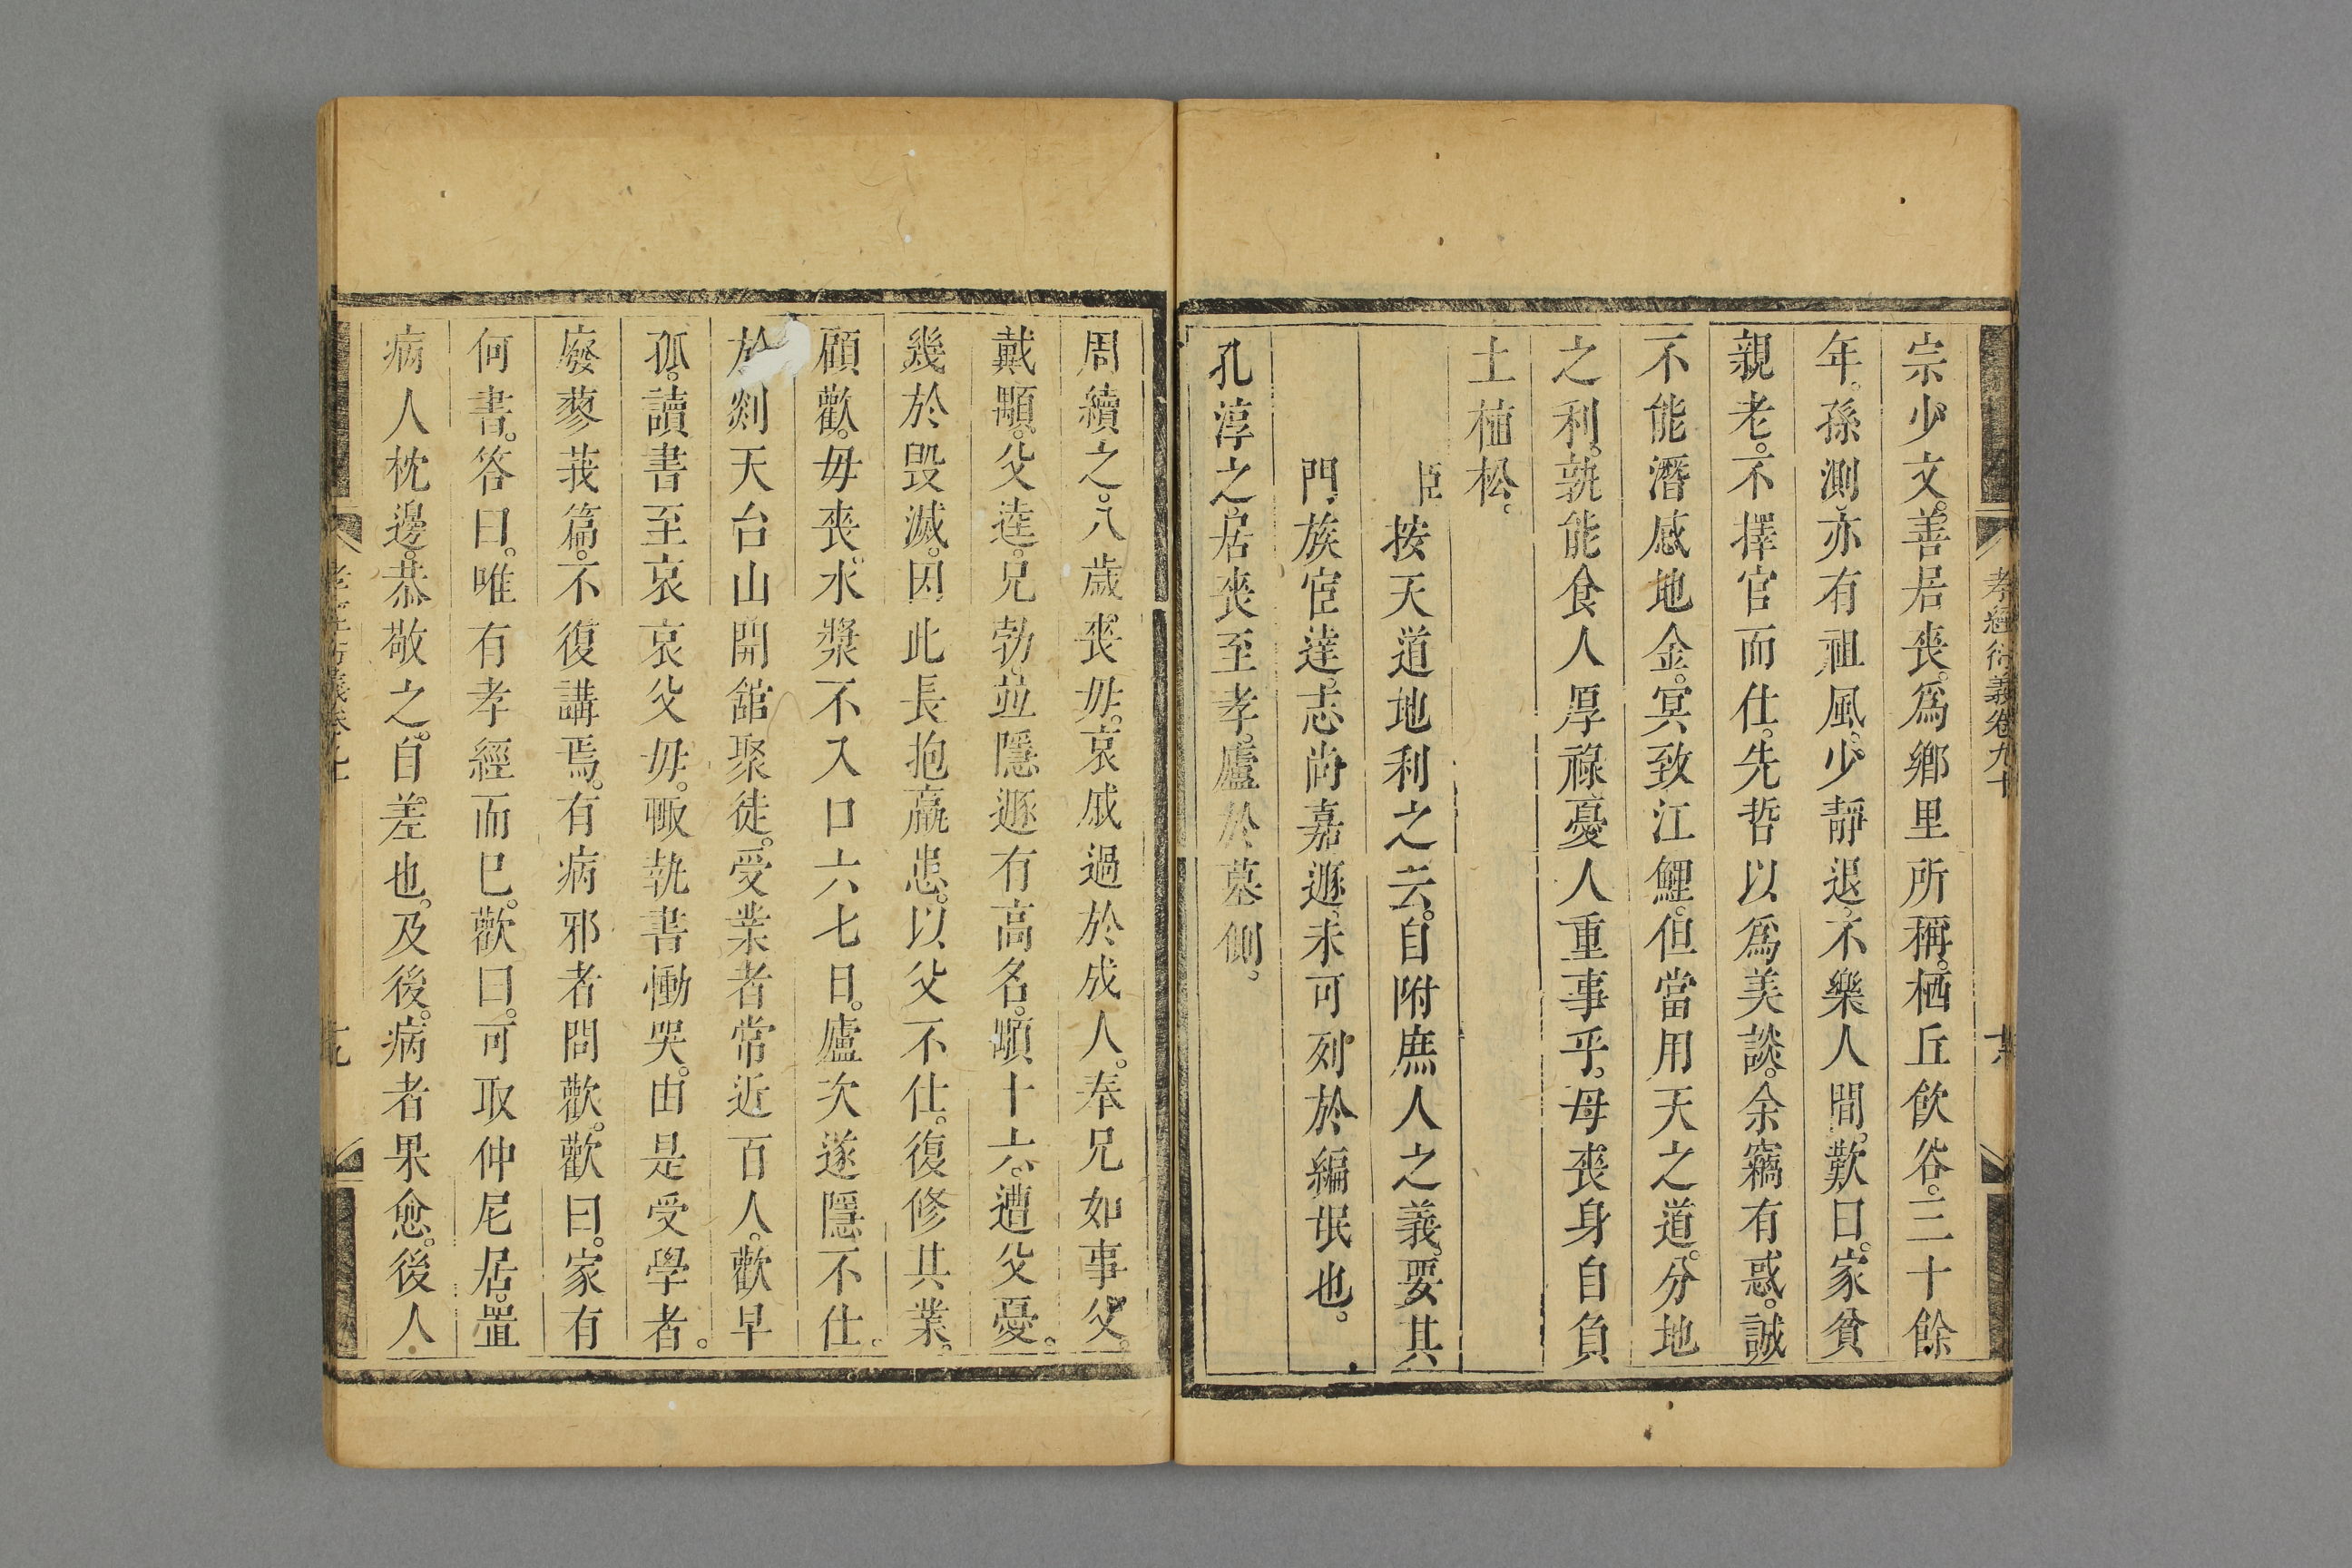 孝經衍義卷九十
宗少文。善居喪。爲鄉里所稱。栖丘飲谷。三十餘
年。孫測亦有祖風。少靜退。不樂人間。歎曰。家貧
親老。不擇官而仕。先哲以爲美談。余竊有惑。誠
不能潛感地金。冥致江鯉。但當用天之道。分地
之利。孰能食人厚祿。憂人重事乎。母喪身自負
土植松。
臣按天道地利之云。自附庶人之義。要其
門族宦達。志尚嘉遯。未可列於編氓也。
孔淳之。居喪至孝。廬於墓側。
周續之。八歲喪毋。哀戚過於成人。奉兄如事父。
戴顒。父逵。兄勃。並隱遯有高名。顒十六。遭父憂。
幾於毀滅。因此長抱羸患。以父不仕。復修其業。
顧歡。毋喪。水漿不入口六七日。廬次遂隱不仕。
於剡天台山開館聚徒。受業者常近百人。歡早
孤。讀書至哀哀父毋。輒執書慟哭。由是受學者。
廢蓼莪篇。不復講焉。有病邪者問歡。歡曰。家有
何書。答曰。唯有孝經而已。歡曰。可取仲尼居。置
病人枕邊。恭敬之。自差也。及後。病者果愈。後人